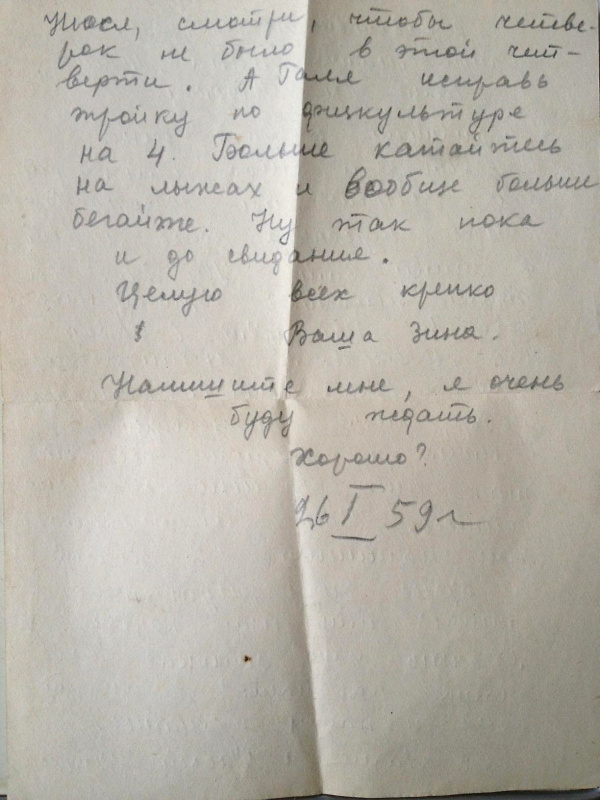 смотри, чтобы четве-
рок не было в этой чет-
верти. А Галя исправь
тройку по физкультуре
на 4. Больше катайтесь
на лыжах и вообще больше
бегайте. Ну так пока
и до свидания.
Целую всех крепко
Ваша Зина.
Напишите мне, я очень
буду ждать.
Хорошо?
26 I 59 г